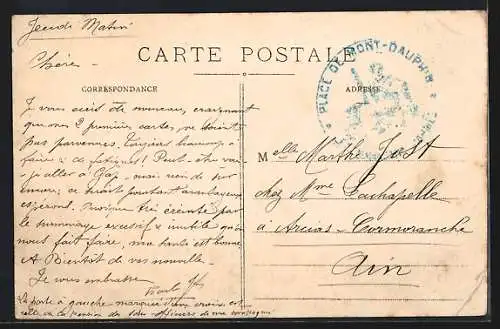 Jeudi Matin
CARTE POSTALE
Chère
PLACE DE MONT-DAUPHIN
CORRESPONDANCE
ADRESSE
Je vous écris de nouveau, craignant
que mes 2 premières cartes ne soient
pas parvenues. Toujours beaucoup à
faire et de fatigues! Peut-être vais-
je aller à Gap mais rien de sur
encore; ce serait pourtant avantageux
le surmenage excessif & inutile qu'on
nous fait faire, ma santé est bonne
A Bientôt de vos nouvelles.
Je vous embrasse
La porte à gauche marquée d'une croix est
celle de la pension des sous officiers de ma compagnie
Melle Marthe Jost
chez Mme Lachapelle
à Cormoranche
Ain